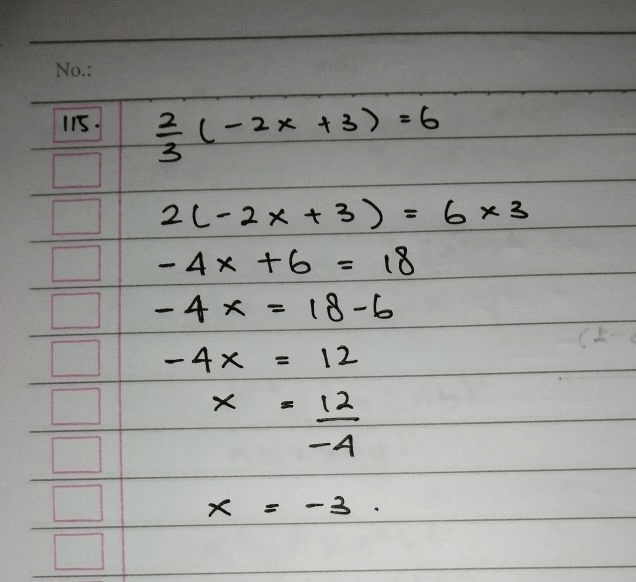 No.:
115. 2/3 (-2x +3) = 6
2(-2x + 3) = 6 × 3
-4x +6 = 18
-4x = 18-6
-4x = 12
x = 12/-4
x = -3.